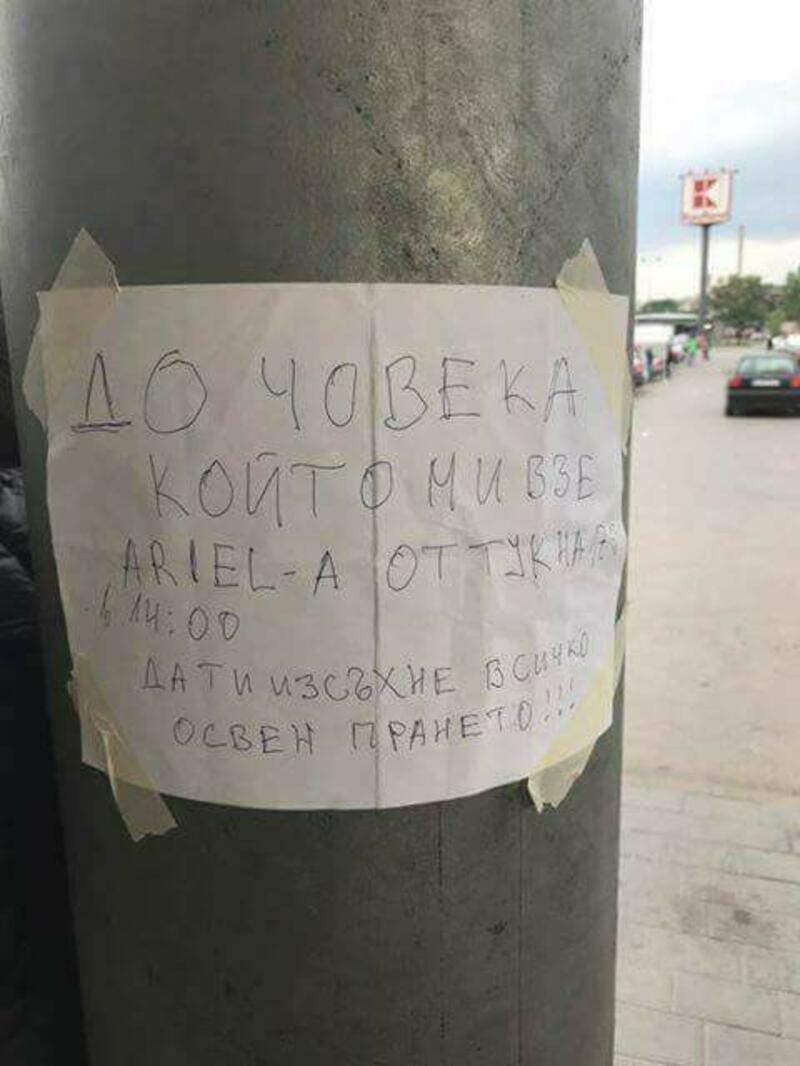 ДО ЧОВЕКА
КОЙТО МИ ВЗЕ
ARIEL-A ОТ ТУК НА
в 14:00
ДА ТИ ИЗСЪХНЕ ВСИЧКО
ОСВЕН ПРАНЕТО!!!
K